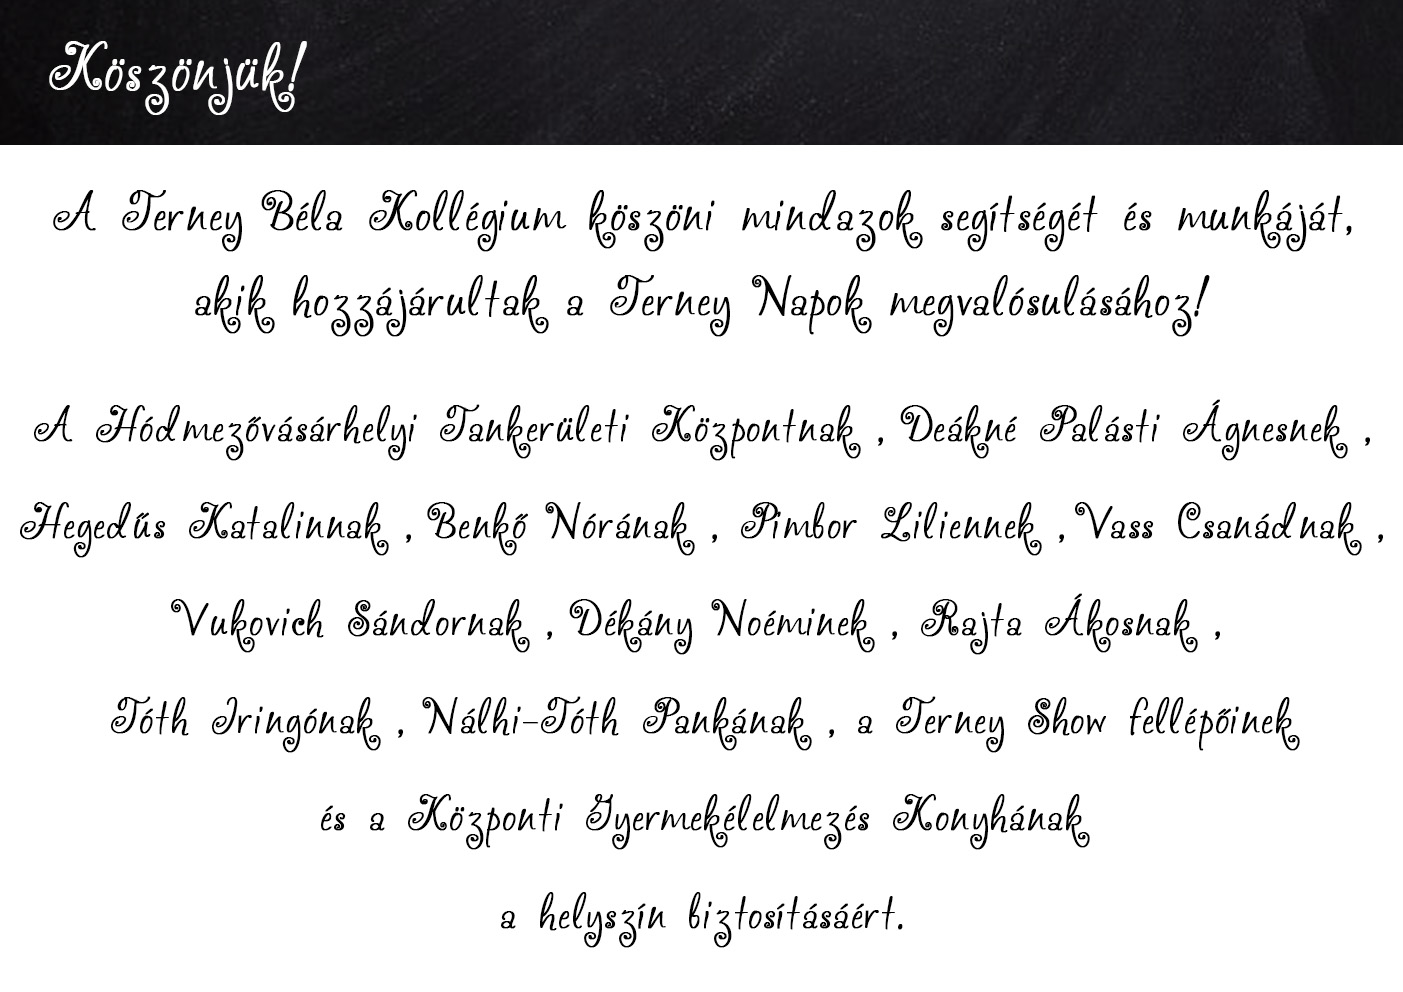 Köszönjük!
A Terney Béla Kollégium köszöni mindazok segítségét és munkáját,
akik hozzájárultak a Terney Napok megvalósulásához!
A Hódmezővásárhelyi Tankerületi Központnak , Deákné Palásti Ágnesnek ,
Hegedűs Katalinnak , Benkő Nórának , Pimbor Liliennek , Vass Csanádnak ,
Vukovich Sándornak , Dékány Noéminek , Rajta Ákosnak ,
Tóth Iringónak , Nálhi-Tóth Pankának , a Terney Show fellépőinek
és a Központi Gyermekélelmezés Konyhának
a helyszín biztosításáért.